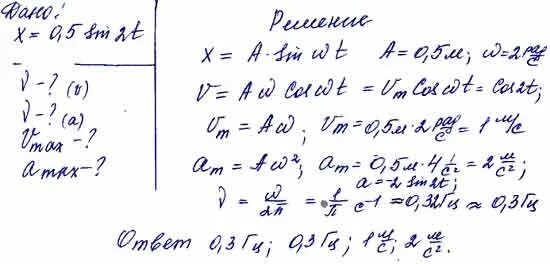 Дано:
x = 0,5 sin 2t
ν-? (v)
ν-? (a)
Vmax-?
amax-?
Решение
x = A · sin ωt A = 0,5 м; ω = 2 рад/с
V = Aω Cos ωt = Vm Cos ωt = Cos 2t;
Vm = Aω; Vm = 0,5 м · 2 рад/с = 1 м/с
am = Aω²; am = 0,5 м · 4 1/с² = 2 м/с²;
a = -2 sin 2t;
ν = ω/2π = 1/π с⁻¹ ≈ 0,32 Гц ≈ 0,3 Гц
Ответ 0,3 Гц; 0,3 Гц; 1 м/с; 2 м/с².